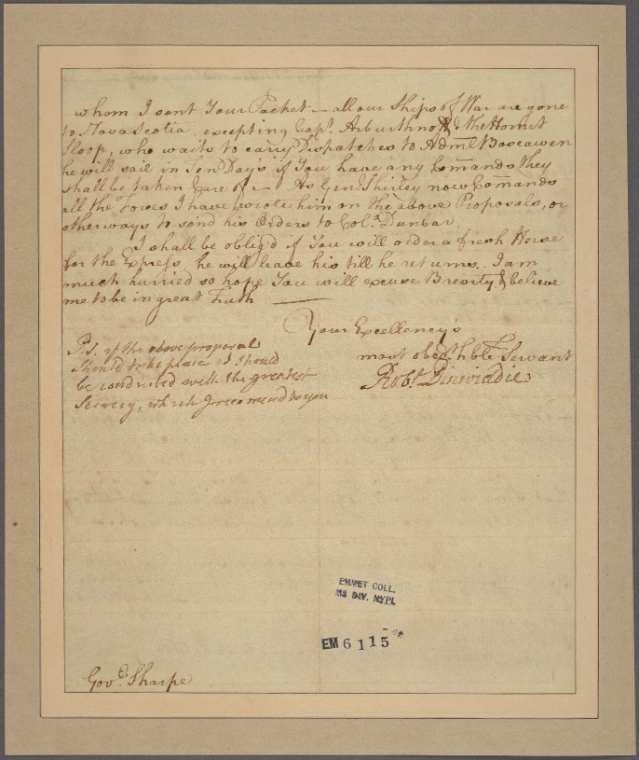 whom I sent Your Packet — all our Ships of War are gone
to Nova Scotia excepting Capt. Arburthnott & the Hornet
Sloop, who waits to carry Dispatches to Adml. Boscawen
he will sail in Ten Day's if You have any Comands they
shall be taken Care of — As Genl. Shirley now Comands
all the Forces I have wrote him on the above Proposals, or
otherways to send his Orders to Col. Dunbar
I shall be oblig'd if You will order a fresh Horse
for the Express, he will leave his till he returns. I am
much hurried so hope You will excuse Brevity & believe
me to be in great truth —
Your Excellency's
most obedt. hble Servant
Robt. Dinwiddie
P.S. if the above proposal
should take place it should
be conducted with the greatest
Secrecy, which I recommend to you
EMMET COLL.
MS DIV. NYPL
EM 6115
Govr. Sharpe